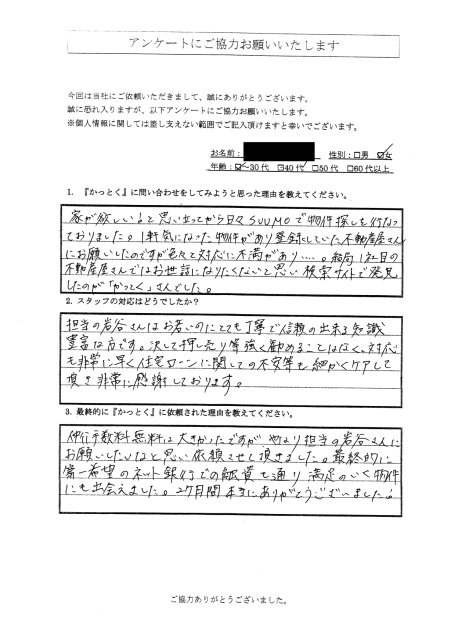 アンケートにご協力お願いいたします
今回は当社にご依頼いただきまして、誠にありがとうございます。
誠に恐れ入りますが、以下アンケートにご協力お願いいたします。
※個人情報に関しては差し支えない範囲でご記入頂けますと幸いでございます。
お名前： 性別：□男 ☑女
年齢：☑～30代 ☑40代 □50代 □60代以上
1. 『かっとく』に問い合わせをしてみようと思った理由を教えてください。
家が欲しいなと思い立ってから日々SUUMOで物件探しを行なっ
ておりました。1軒気になった物件があり登録していた不動産屋さん
にお願いしたのですが色々と対応に不満があり....。結局1社目の
不動産屋さんではお世話になりたくないと思い検索サイトで発見
したのが「かっとく」さんでした。
2. スタッフの対応はどうでしたか？
担当の岩谷さんはお若いのにとても丁寧で信頼の出来る知識
豊富な方です。決して押し売り等強く勧めることはなく、対応
も非常に早く住宅ローンに関しての不安等も細かくケアして
頂き非常に感謝しております。
3. 最終的に『かっとく』に依頼された理由を教えてください。
仲介手数料無料は大きかったですが やはり担当の岩谷さんに
お願いしたいなと思い依頼させて頂きました。最終的に
第一希望のネット銀行での融資も通り 満足のいく物件
にも出会えました。2ヶ月間本当にありがとうございました！
ご協力ありがとうございました。